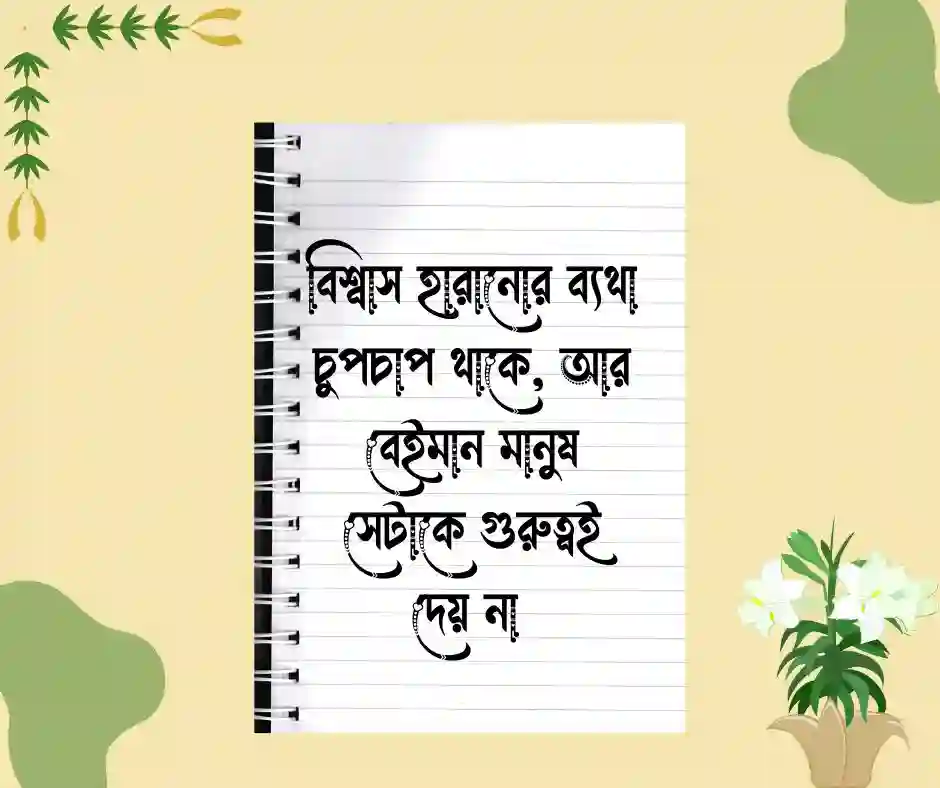 বিশ্বাস হারানোর ব্যথা
চুপচাপ থাকে, আর
বেইমান মানুষ
সেটাকে গুরুত্বই
দেয় না